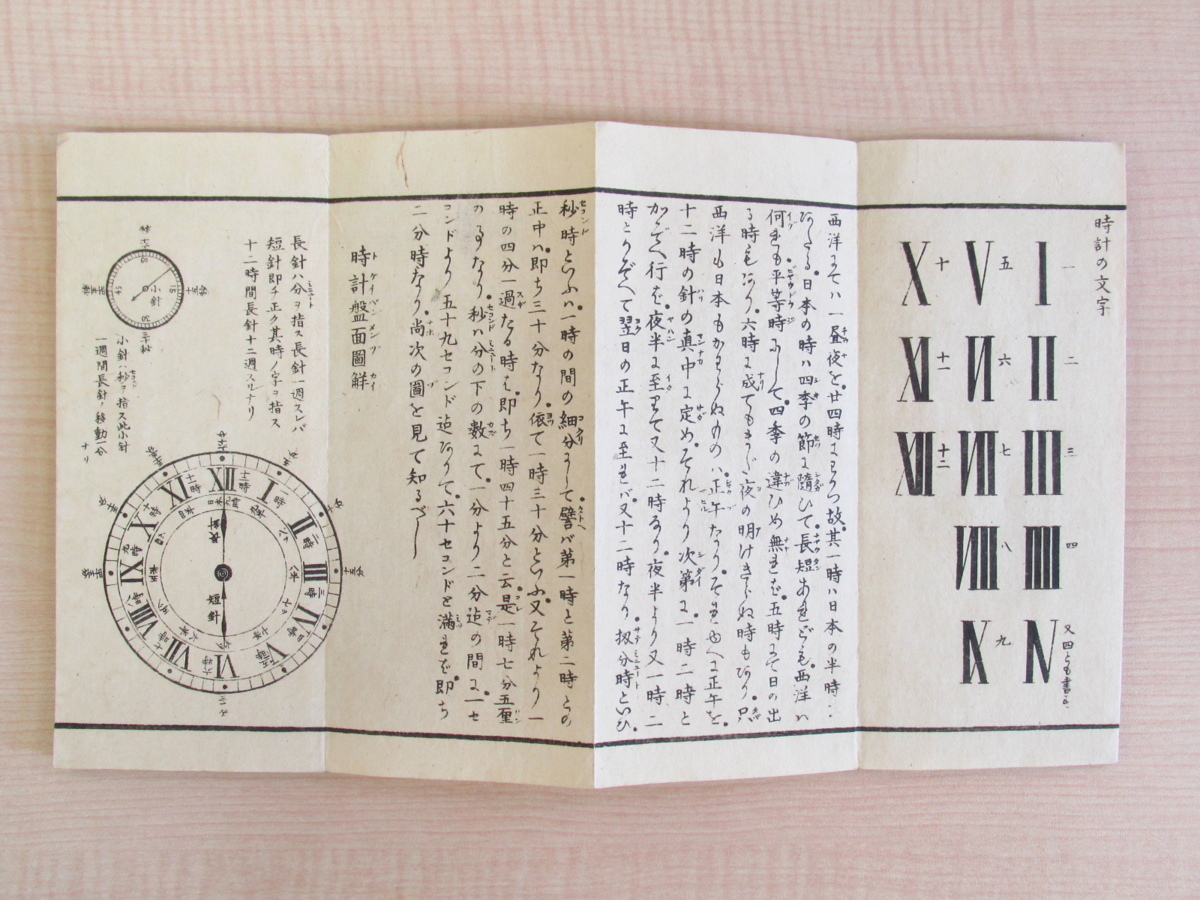 時計の文字
一 I
二 II
三 III
四 IIII
又四とも書
IV
五 V
六 VI
七 VII
八 VIII
九 IX
十 X
十一 XI
十二 XII
西洋にてハ一昼夜を廿四時にわかつ故其一時ハ日本の半時
日本の時ハ四季の節に随ひて長短あれども西洋ハ
何れも平等時にして四季の違ひめ無れを五時にて日の出
る時もあり六時に成てもまだ夜の明けきらぬ時もあり只
西洋も日本もかわらぬものハ正午なりそれゆへに正午を
十二時の針の真中に定めそれより次第に一時二時と
かぞへ行を夜半に至りて又十二時なり夜半より又一時二
時とかぞへて翌日の正午に至れバ又十二時なり扨分時といひ
秒時といふハ一時の間の細分にして譬バ第一時と第二時との
正中ハ即ち三十分なり依て一時三十分といふ又それより一
時の四分一過たる時を即ち一時四十五分と云是一時七分五厘
のるなり秒ハ分の下の数にて一分より二分迄の間に一セ
コンドより五十九セコンド迄ありて六十セコンドを満れを即ち
二分時なり尚次の圖を見て知るべし
時計盤面圖解
トケイバンメンヅカイ
長針ハ分ヲ指ス長針一週スレバ
短針即チ正ク其時ノ字ヲ指ス
十二時間長針十二週スルナリ
小針ハ秒ヲ指ス此小針
一週間長針ノ移動一分
ナリ
小針
60
15
30
45
長針
短針
XII
I
II
III
IV
V
VI
VII
VIII
IX
X
XI